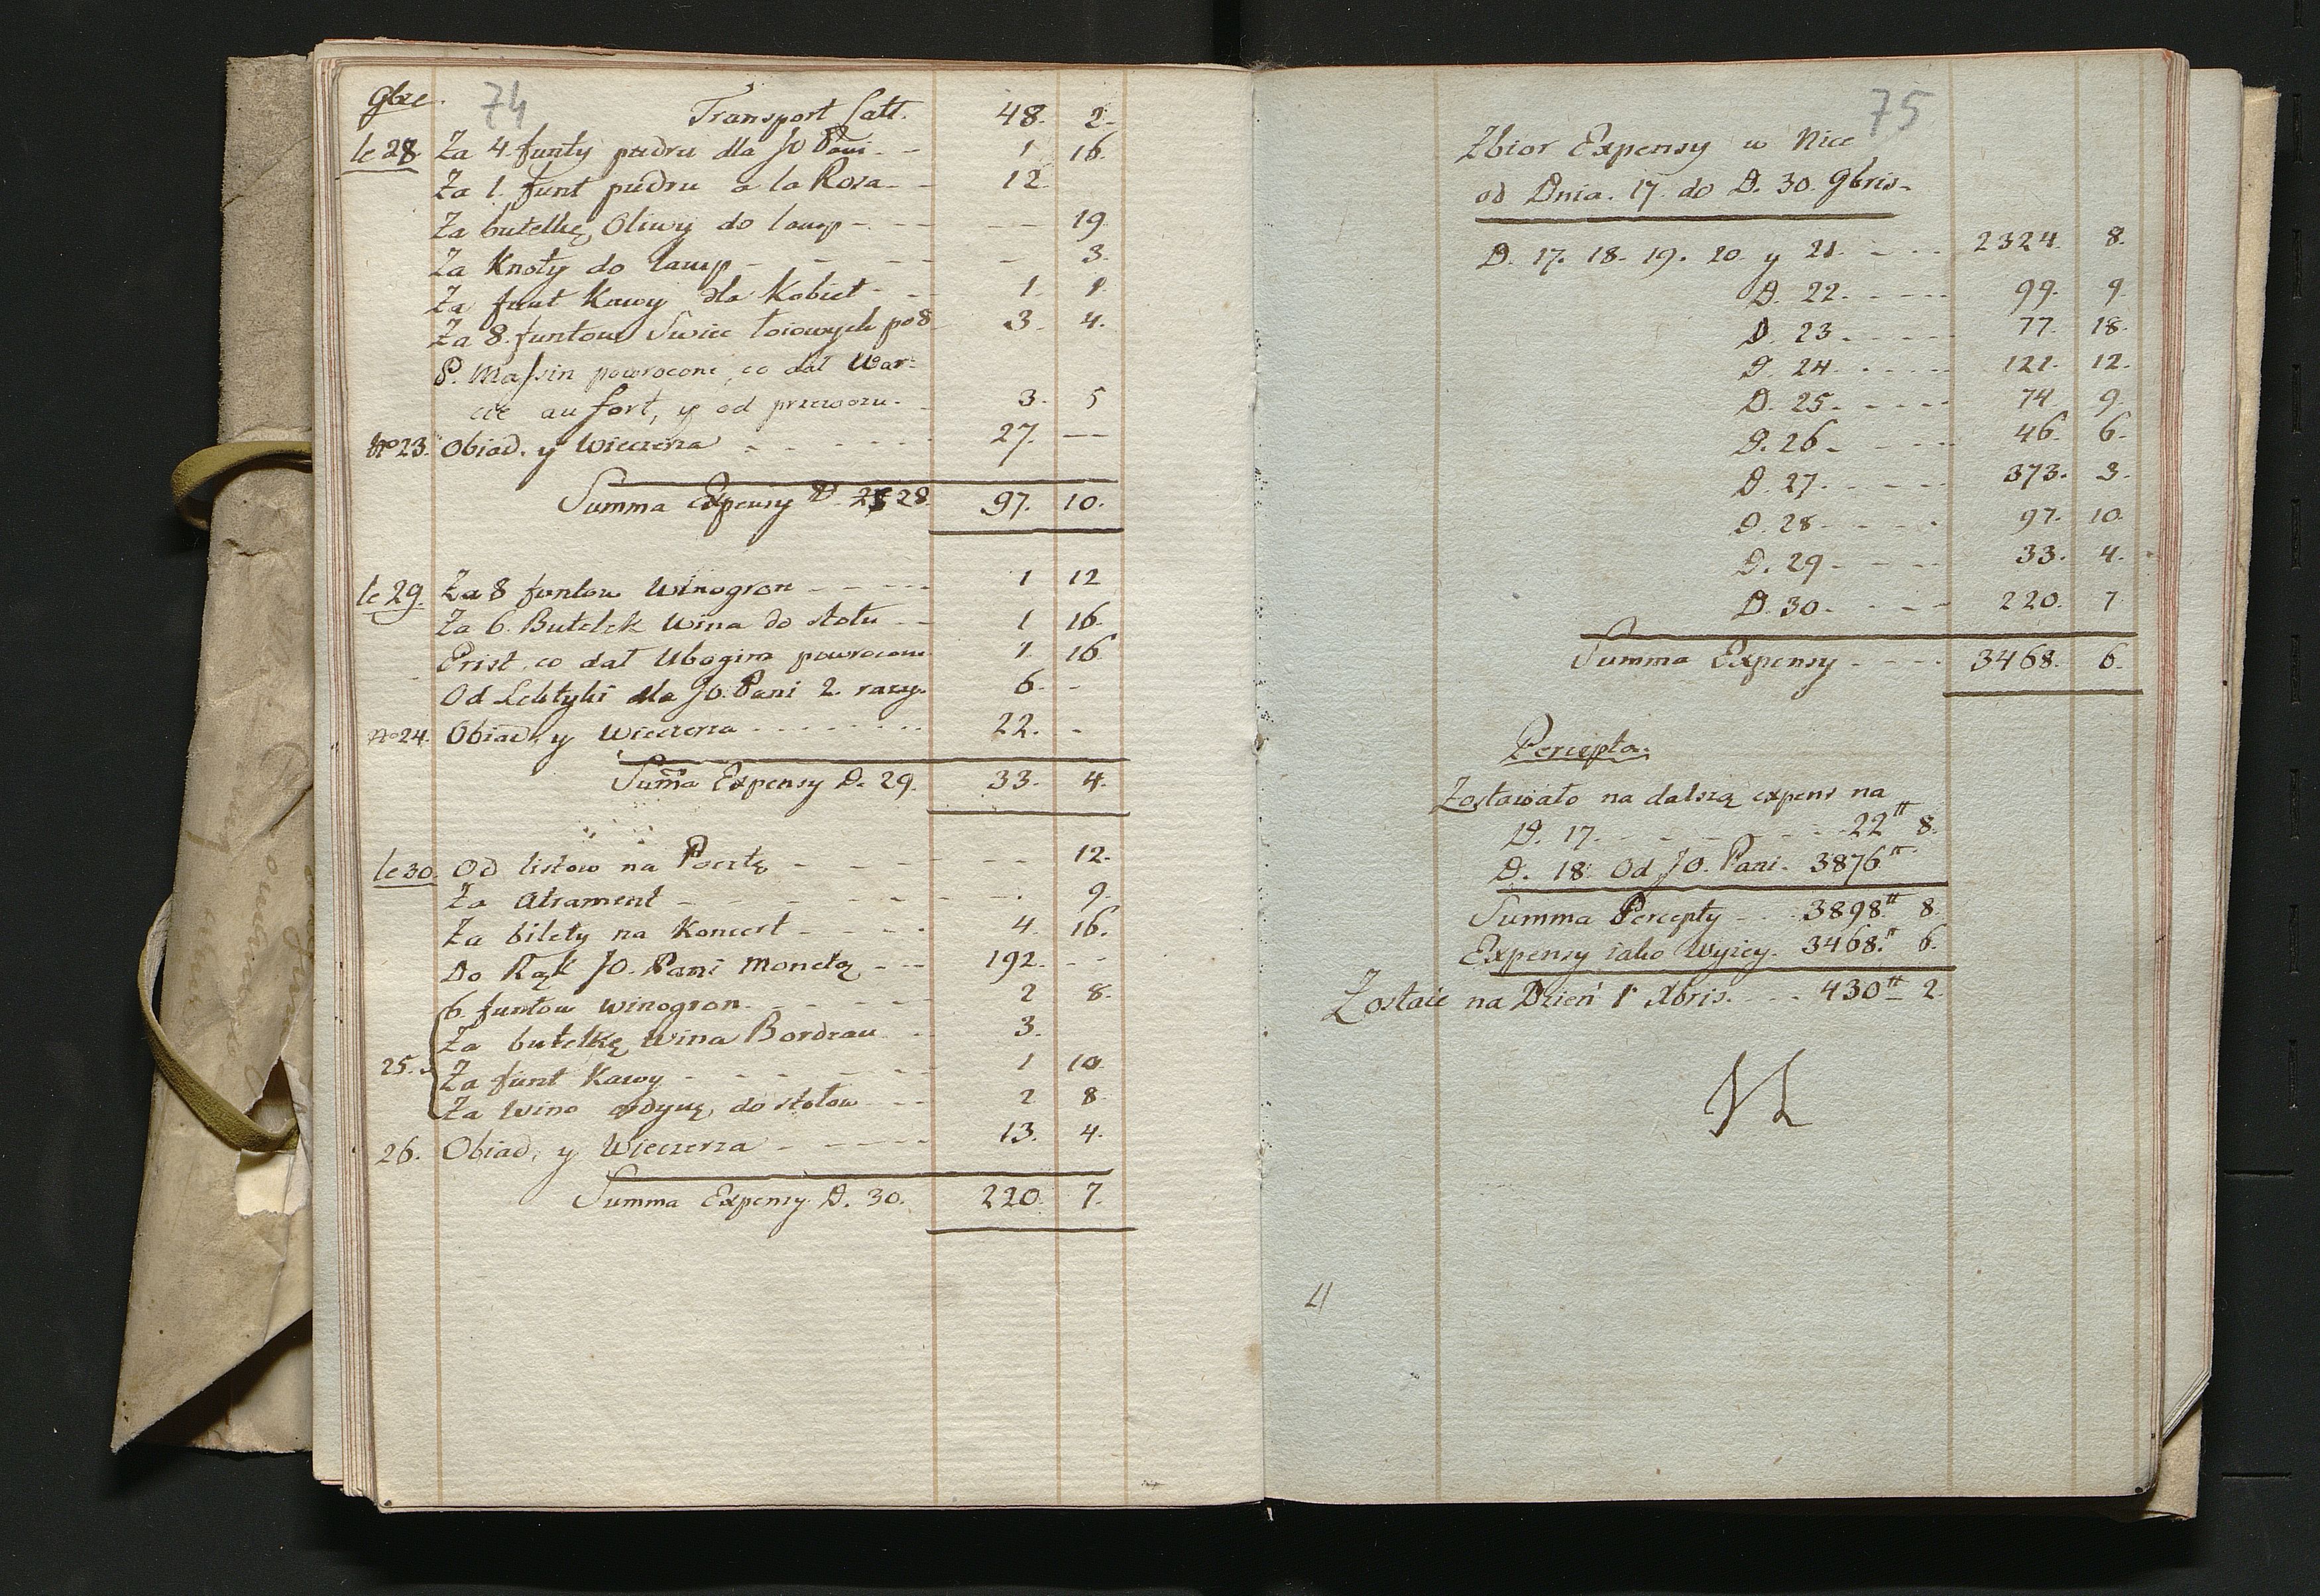 9bre. 74
Transport Latt. 48. 2.
le 28 Za 4. funty pudru dla JO Pani - - 1 16.
Za 1. funt pudru a la Roza - - 12.
Za butelkę Oliwy do lamp - - - - - 19.
Za Knoty do lamp - - - - - 3.
Za funt Kawy dla Kobiet - - 1. 1.
Za 8. funtow Swiec łoiowych po 8 3. 4.
P. Massin powrocone, co dał War-
cie au fort, y od przewozu. - 3. 5
No 23. Obiad. y Wieczerza - - - - - 27. —
Summa Expensy D. 28. 97. 10.
le 29. Za 8 funtow Winogron - - - - 1 12
Za 6. Butelek Wina do stołu - - 1 16.
Prist. co dał Ubogim powrocone 1 16
Od Lektyki dla JO. Pani 2. razy. 6. -
No 24. Obiad, y Wieczerza - - - - - - 22. -
Summa Expensy D. 29. 33. 4.
le 30. Od listow na Pocztę - - - - - 12.
Za Atrament - - - - - - - 9.
Za bilety na Koncert - - - - 4. 16.
Do Rąk JO. Pani Monetą - - - 192. - -
6. funtow winogron. - - - - - 2 8.
Za butelkę wina Bordeau - - 3.
25. Za funt Kawy - - - - - - - 1 10
Za Wino ordynę, do stołow - - - 2 8
26. Obiad, y Wieczerza - - - - - 13. 4.
Summa Expensy D. 30. 220. 7.
75
Zbior Expensy w Nice
od Dnia. 17. do D. 30. 9bris-
D. 17. 18. 19. 20. y 21. - - - 2324. 8.
D. 22. - - - - 99. 9
D. 23 - - - - 77. 18.
D. 24. - - - - 121. 12.
D. 25. - - - - 74 9.
D. 26 - - - - 46. 6.
D. 27. - - - - 373. 3.
D. 28 - - - - 97. 10.
D. 29 - - - - 33. 4.
D. 30. - - - - 220. 7
Summa Expensy - - - - 3468. 6.
Percepta.
Zostawało na dalszą expens na
D. 17. - - - - - - 22 tt 8.
D. 18. Od JO. Pani. 3876 tt
Summa Percepty - - 3898 tt 8.
Expensy iako Wyiey. 3468. tt 6.
Zostaie na Dzień 1 Xbris. - - - 430 tt 2.